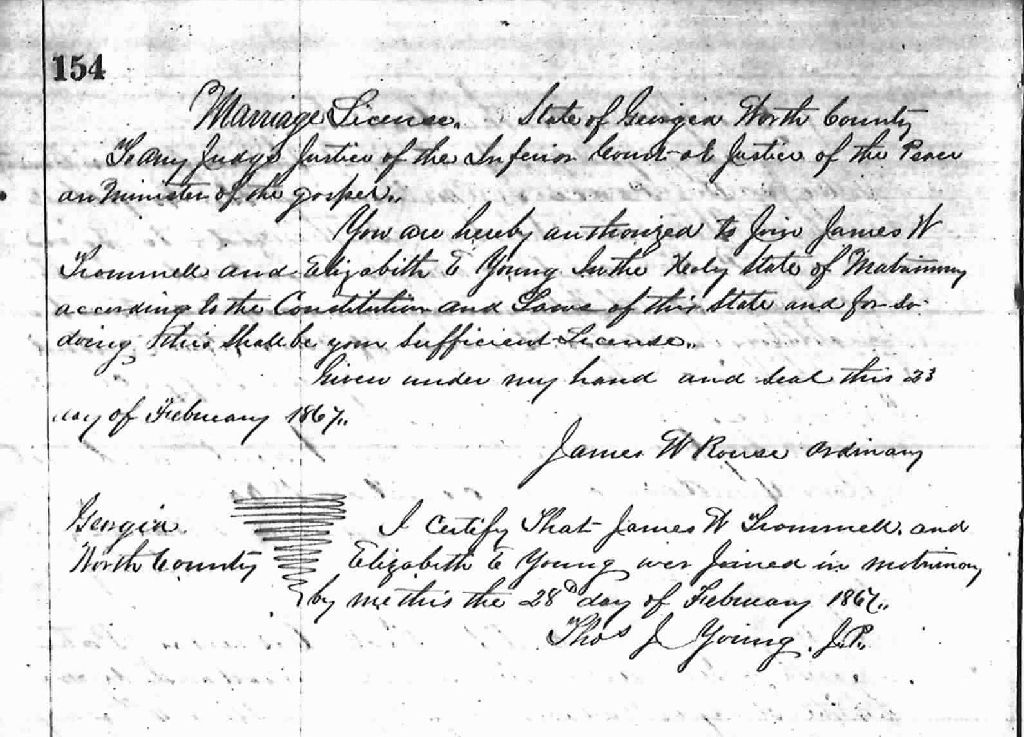 154
Marriage License. State of Georgia Worth County
To any Judge Justice of the Inferior Court Justice of the Peace
an Minister of the gospel.,
You are hereby authorized to Join James W
Trommell and Elizabith E Young In the Holy State of Matrimony
according to the Constitution and Laws of this State and for So
doing this Shall be your Sufficient License.,
Given under my hand and Seal this 23
day of February 1867.,
James W Rouse Ordinary
Georgia
Worth County
I Certify That James W Trommell and
Elizabith E Young wer Joined in matrimony
by me this the 28D day of February 1867.,
Thos J Young J.P.